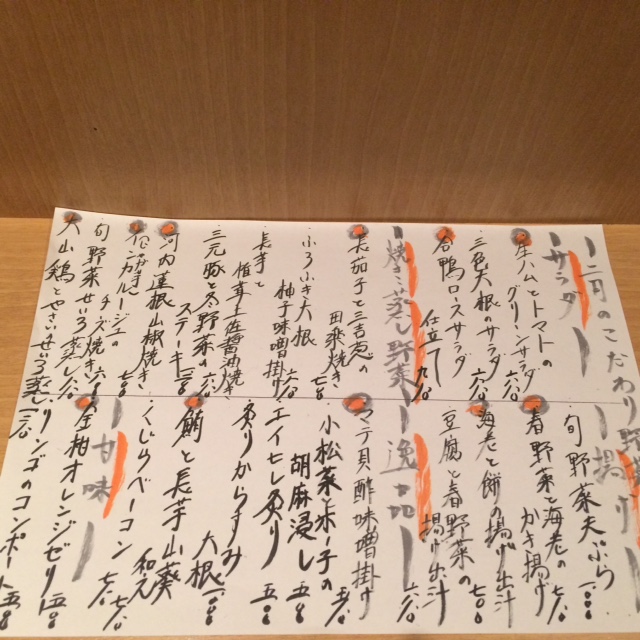 二月のこだわり野菜
サラダ
生ハムとトマトの
グリーンサラダ
三色大根のサラダ 六八〇
合鴨ロースサラダ
仕立て 九八〇
焼き・蒸し野菜
長茄子と
田楽焼き 七八〇
ふろふき大根
柚子味噌掛け 六八〇
長芋と
椎茸土佐醤油焼き
三元豚と冬野菜の
ステーキ
河内蓮根山椒焼き
チーズ焼き
旬野菜せいろ蒸し
大山鶏とやさいせいろ蒸し
揚げ
旬野菜天ぷら
春野菜と海老の
かき揚げ 七八〇
海老と餅の揚げ出汁
豆腐と春野菜の
揚げ出汁 六八〇
逸品
マテ貝酢味噌掛け
小松菜と
胡麻浸し 五八〇
エイヒレ炙り 五八〇
炙りからすみ
大根
鮪と長芋山葵
和え 七八〇
くじらベーコン 七八〇
甘味
金柑オレンジゼリー 五八〇
リンゴのコンポート 五八〇